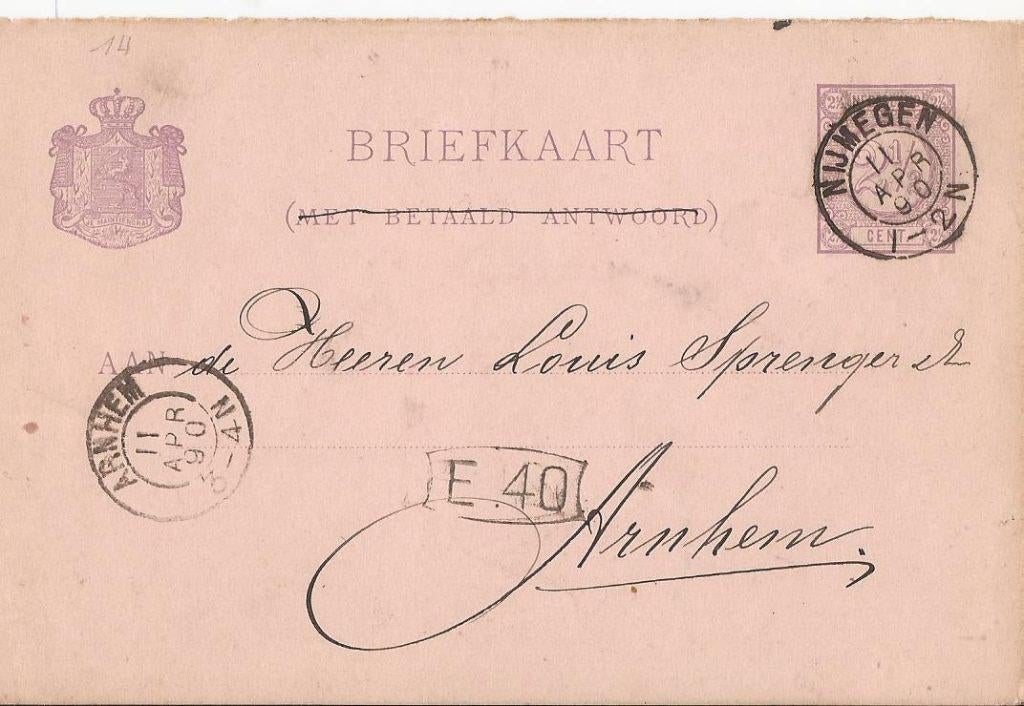 14
BRIEFKAART
(MET BETAALD ANTWOORD)
2½ 2½
NIJMEGEN
11
APR
90
1-2N
CENT
2½ 2½
AAN de Heeren Louis Sprenger &
ARNHEM
11
APR
90
3-4N
E. 40
Arnhem.